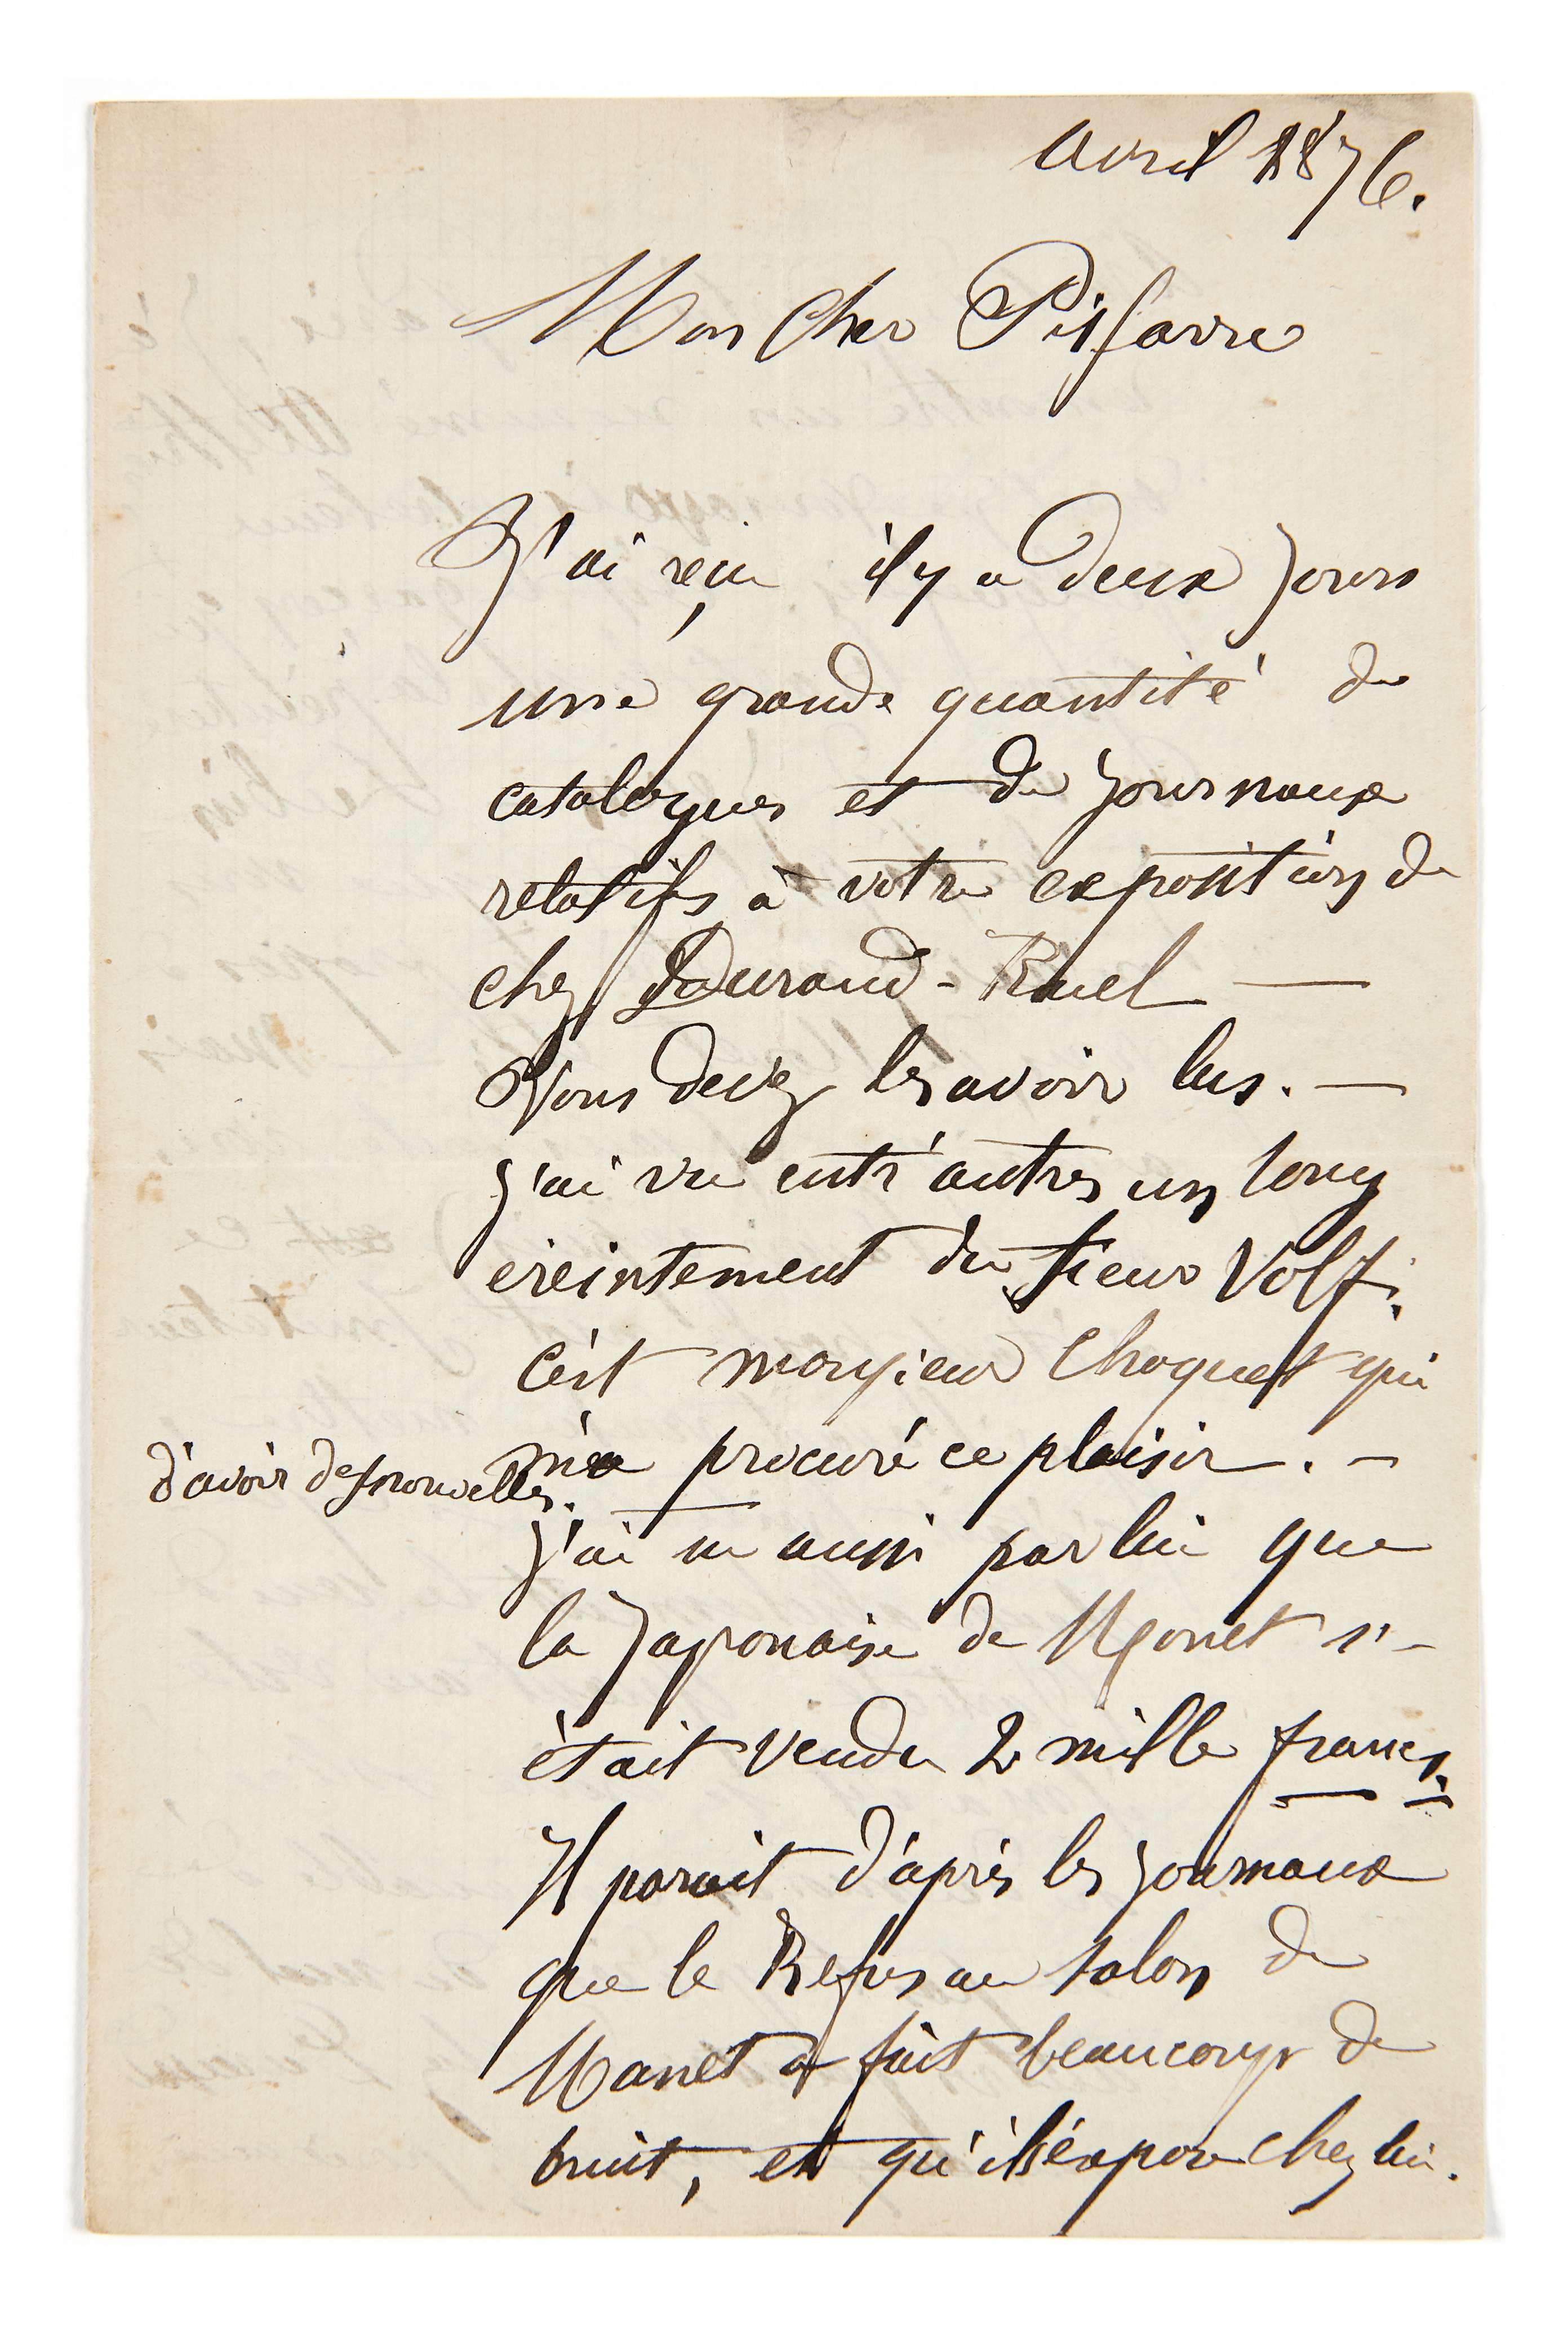 avril 1876.
Mon cher Pissarro
J'ai reçu il y a deux jours
une grande quantité de
catalogues et de journaux
relatifs à votre exposition de
chez Durand-Ruel —
Vous devez les avoir lus. —
j'ai vu entr'autres un long
éreintement du sieur Volf.
c'est monsieur Choquet qui
m'a procuré ce plaisir. —
d'avoir des nouvelles.
J'ai su aussi par lui que
la Japonaise de Monet s'-
était vendu 2 mille francs.
Il parait d'après les journaux
que le Refus au salon de
Manet a fait beaucoup de
bruit, et qu'il expose chez lui.